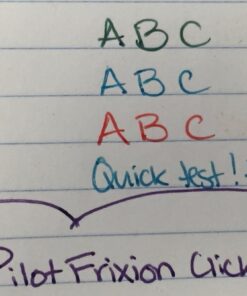 A B C
A B C
A B C
Quick test!
Pilot Frixion Click